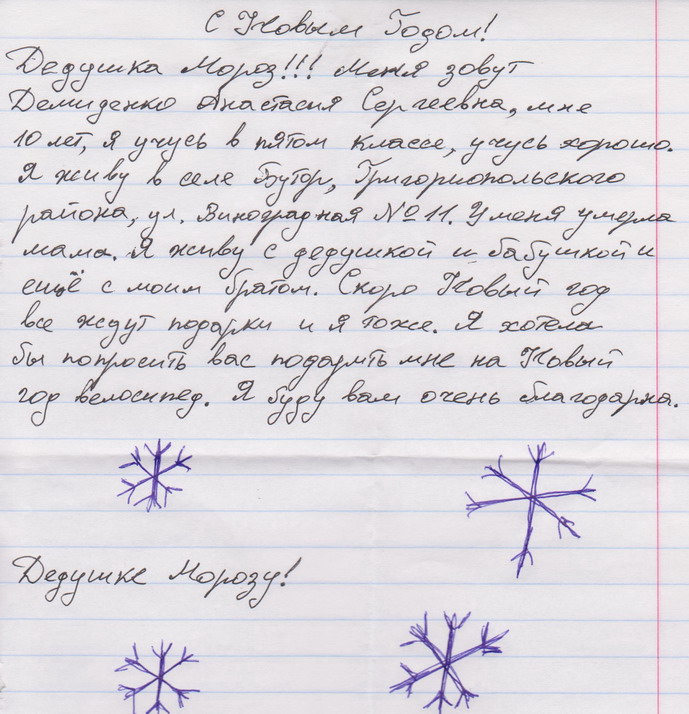 С Новым Годом!
Дедушка Мороз!!! Меня зовут
Демиденко Анастасия Сергеевна, мне
10 лет, я учусь в пятом классе, учусь хорошо.
Я живу в селе Бутор, Григориопольского
района, ул. Виноградная №11. У меня умерла
мама. Я живу с дедушкой и бабушкой и
ещё с моим братом. Скоро Новый год
все ждут подарки и я тоже. Я хотела
бы попросить вас подарить мне на Новый
год велосипед. Я буду вам очень благодарна.
Дедушке Морозу!